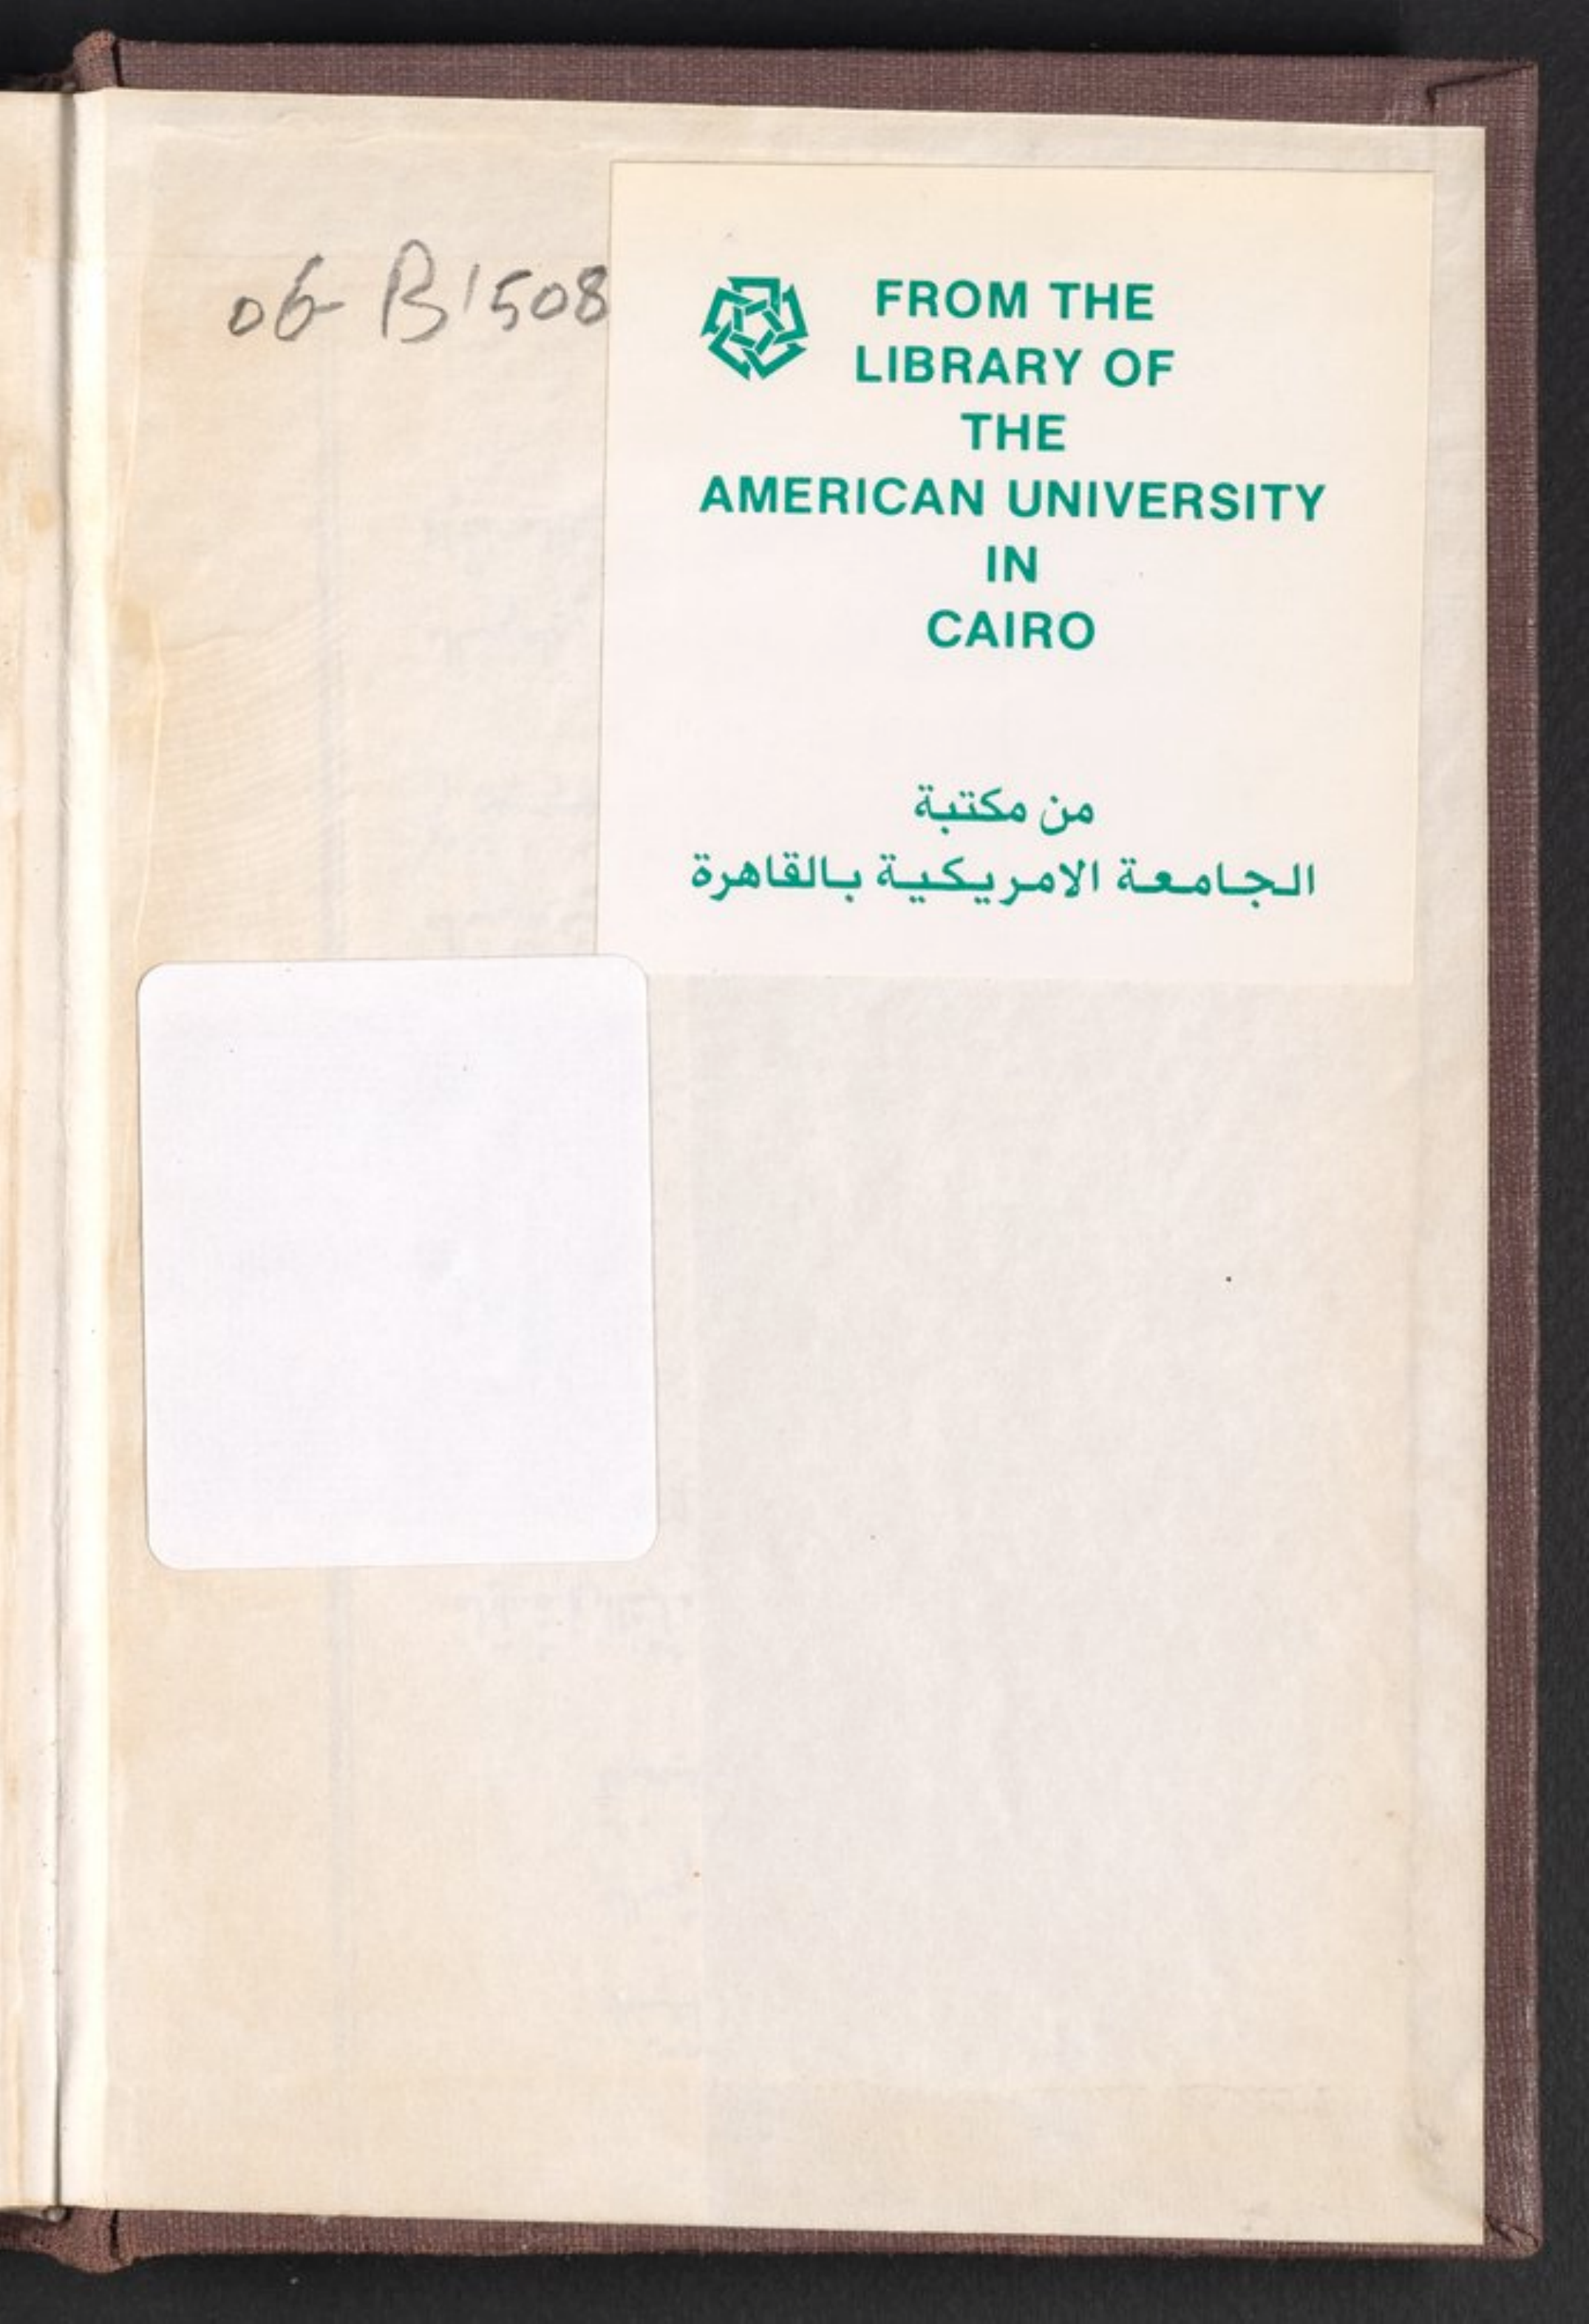 06-B1508
FROM THE
LIBRARY OF
THE
AMERICAN UNIVERSITY
IN
CAIRO
من مكتبة
الجامعة الامريكية بالقاهرة